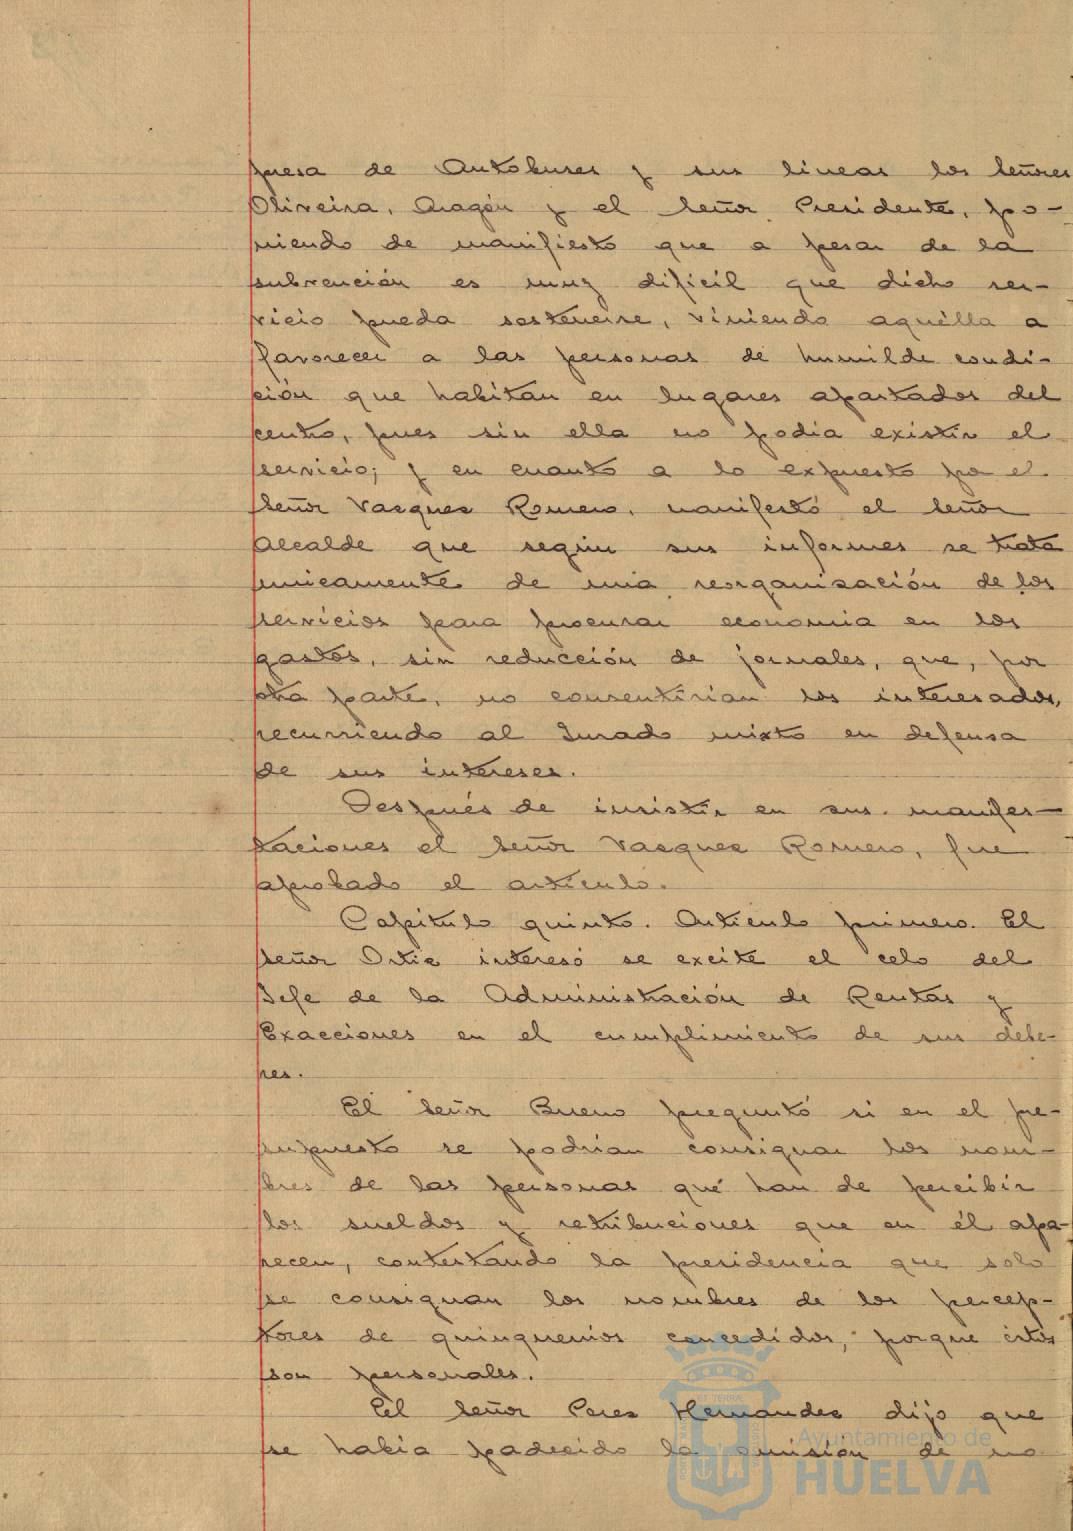 presa de Autobuses y sus lineas los señores
Oliveira, Aragón y el señor Presidente, po-
niendo de manifiesto que a pesar de la
subvención es muy dificil que dicho ser-
vicio pueda sostenerse, viniendo aquélla a
favorecer a las personas de humilde condi-
ción que habitan en lugares apartados del
centro, pues sin ella no podia existir el
servicio; y en cuanto a lo expuesto por el
señor Vazquez Romero, manifestó el señor
Alcalde que según sus informes se trata
unicamente de una reorganización de los
servicios para procurar economia en los
gastos, sin reducción de jornales, que, por
otra parte, no consentirian los interesados,
recurriendo al Jurado mixto en defensa
de sus intereses.
Después de insistir en sus manifes-
taciones el señor Vazquez Romero, fue
aprobado el articulo.
Capitulo quinto. Articulo primero. El
señor Ortiz interesó se excite el celo del
Jefe de la Administración de Rentas y
Exacciones en el cumplimiento de sus debe-
res.
El señor Bueno preguntó si en el pre-
supuesto se podrian consignar los nom-
bres de las personas que han de percibir
los sueldos y retribuciones que en él apa-
recen, contestando la presidencia que solo
se consignan los nombres de los percep-
tores de quinquenios concedidos, porque éstos
son personales.
El señor Perez Hernandez dijo que
se habia padecido la omisión de no
Ayuntamiento de
HUELVA